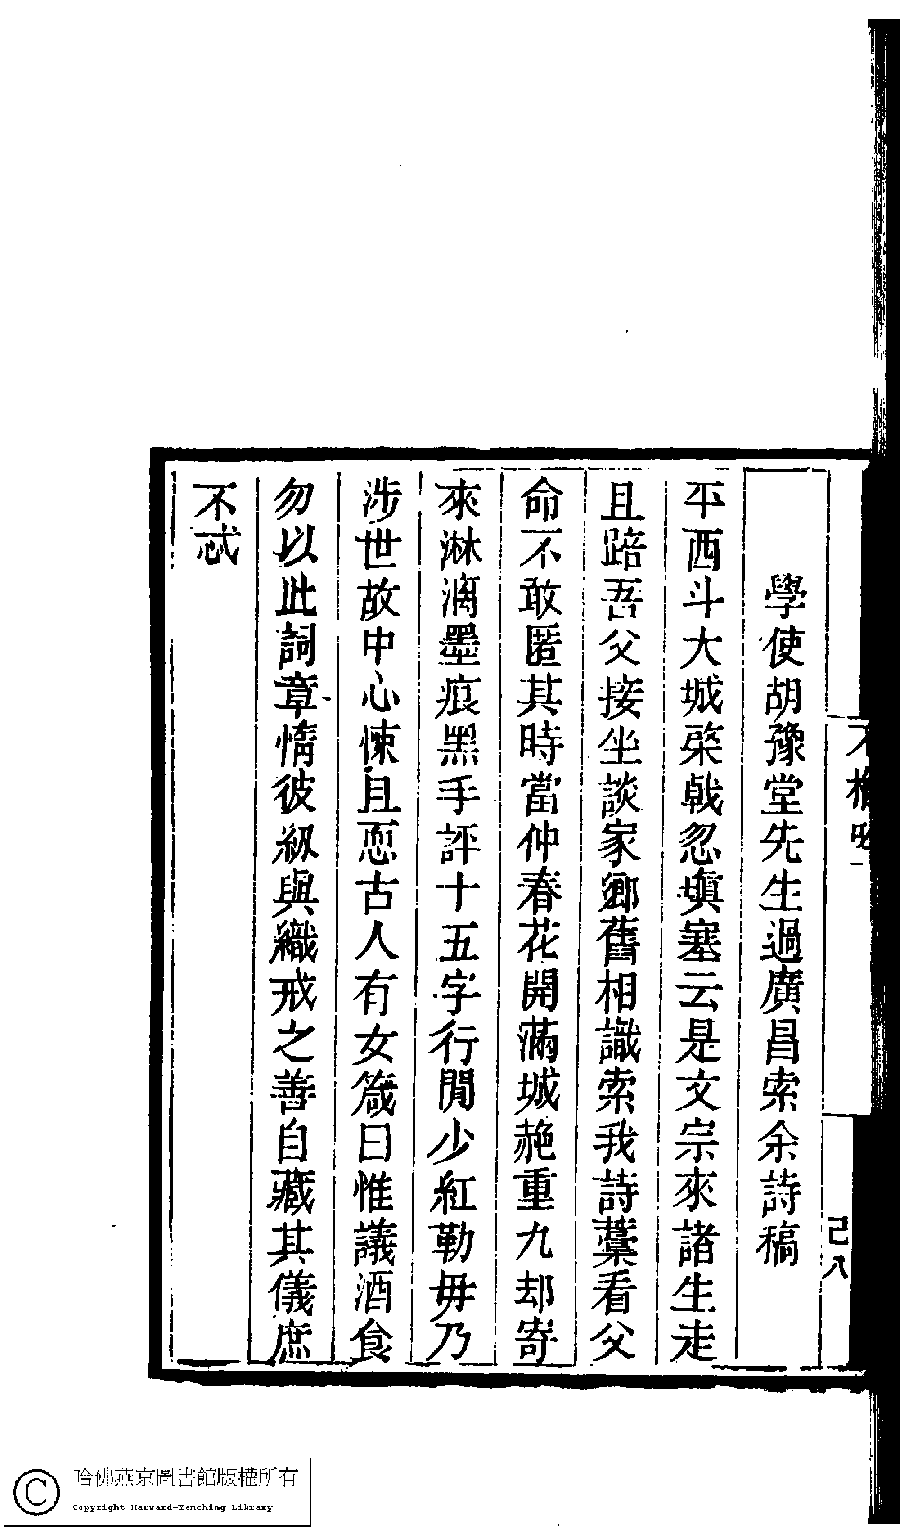 己八
學使胡豫堂先生過廣昌索余詩稿
平西斗大城棨戟忽塡塞云是文宗來諸生走
且踣吾父接坐談家鄉舊相識索我詩藳看父
命不敢匿其時當仲春花開滿城赩重九却寄
來淋漓墨痕黑手評十五字行閒少紅勒毋乃
涉世故中心悚且恧古人有女箴曰惟議酒食
勿以此詞章惰彼紉與織戒之善自藏其儀庶
不忒
© 哈佛燕京圖書館版權所有
Copyright Harvard-Yenching Library